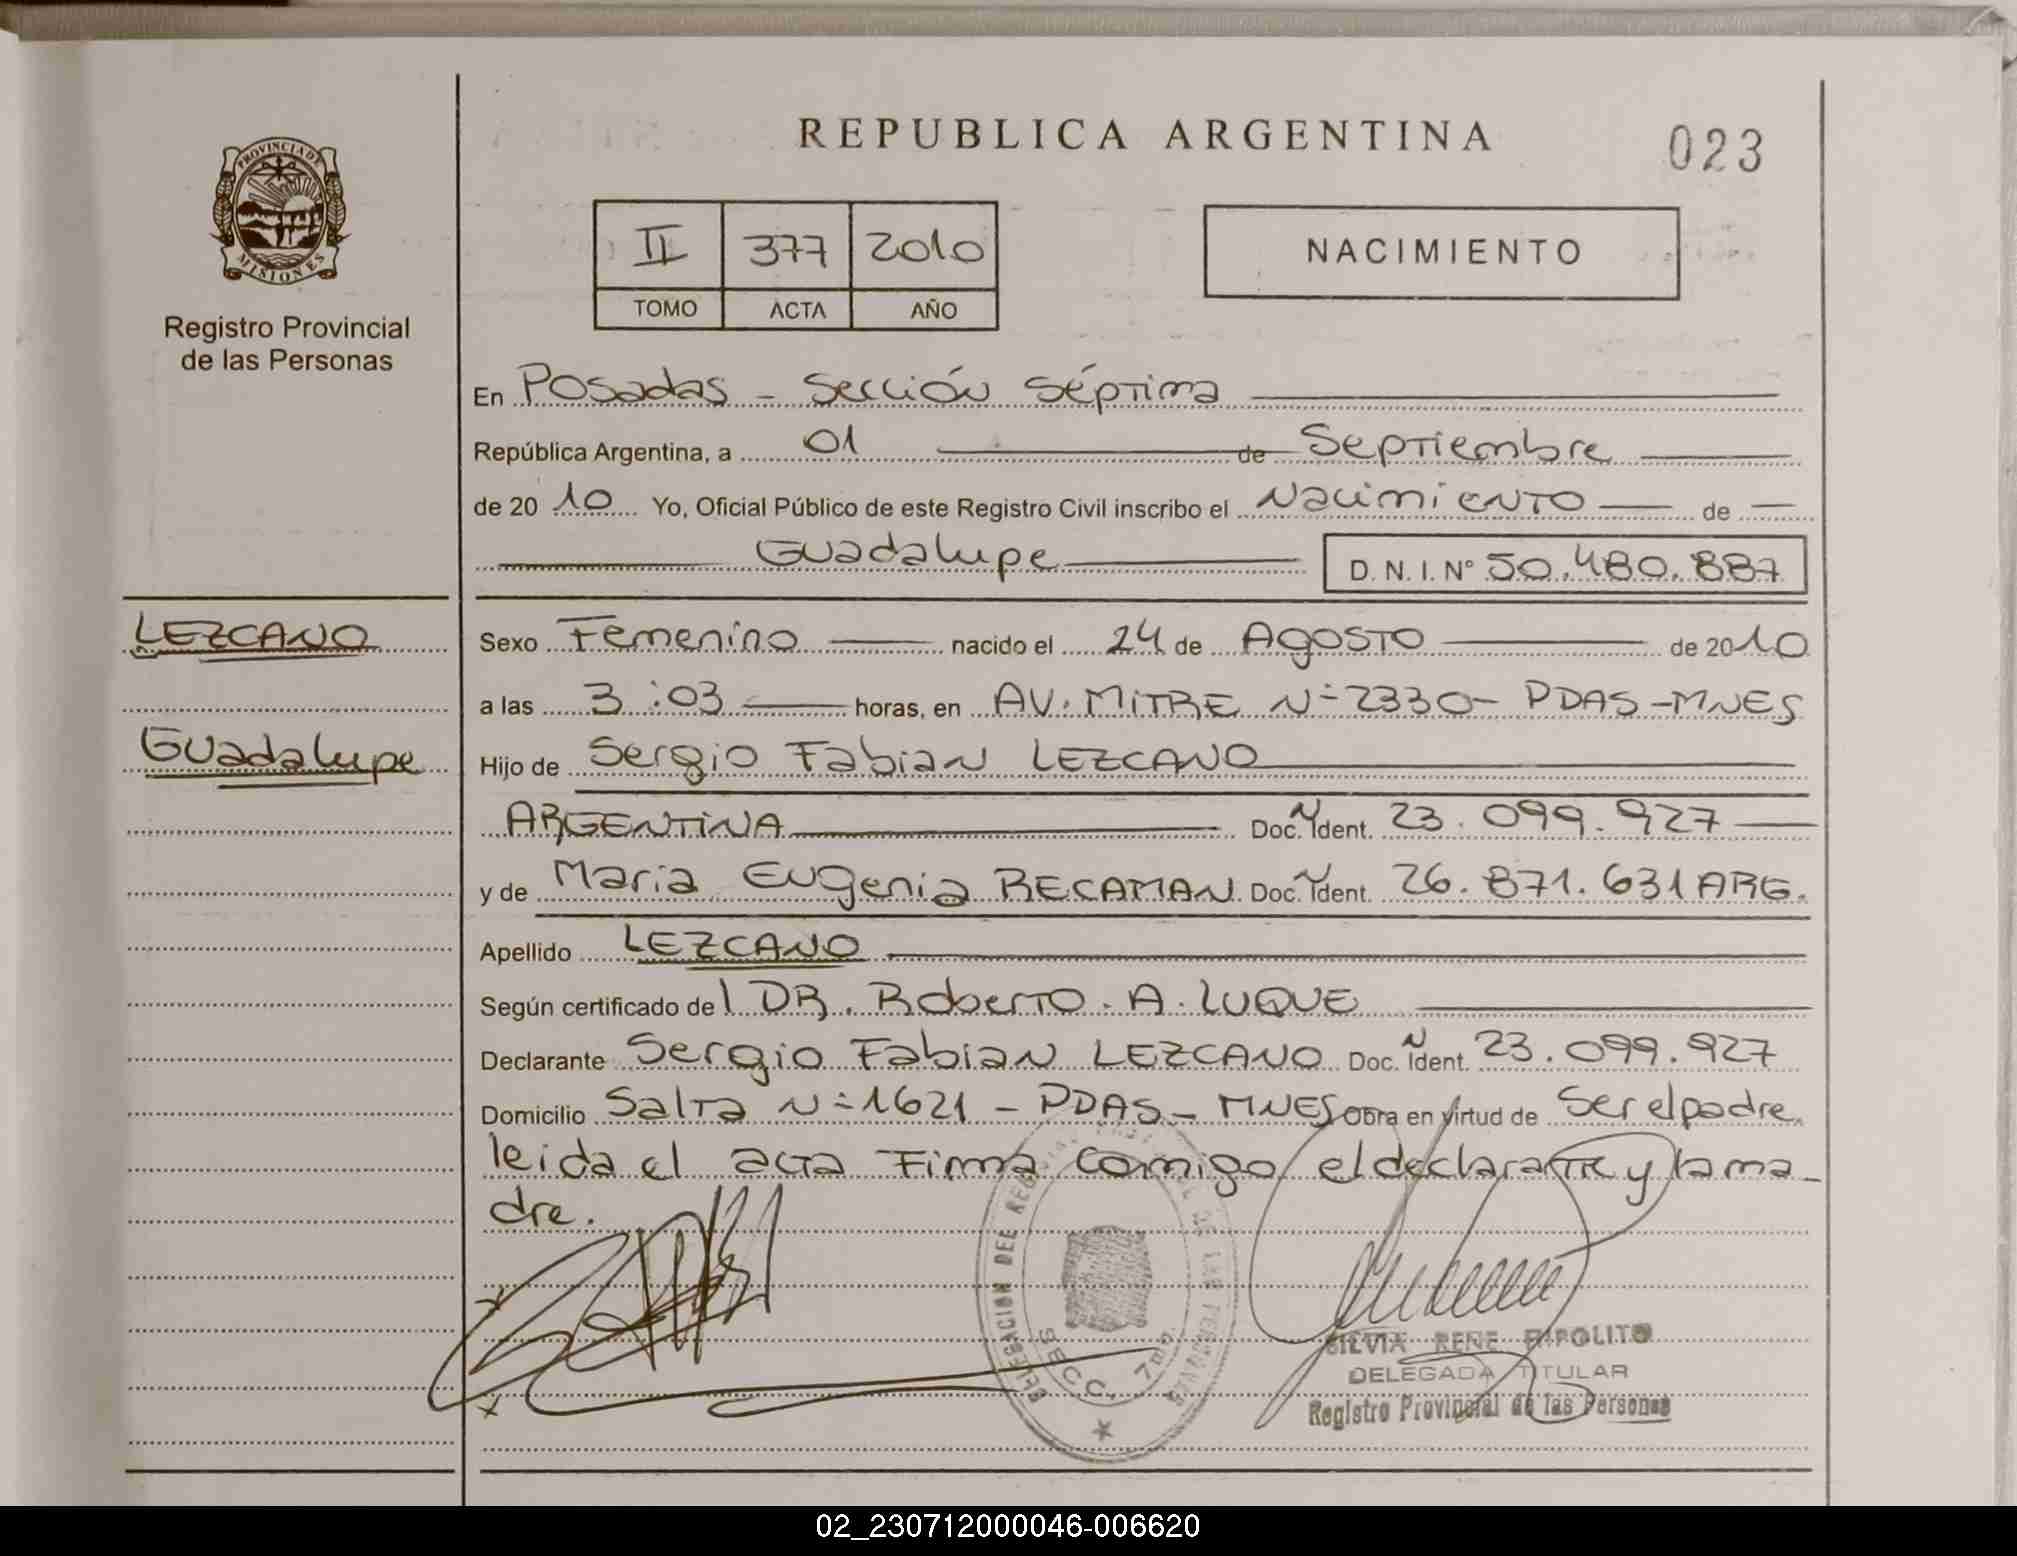 REPUBLICA ARGENTINA
023
PROVINCIA DE MISIONES
Registro Provincial
de las Personas
II 377 2010
TOMO ACTA AÑO
NACIMIENTO
En Posadas - Sección Séptima
República Argentina, a 01 de Septiembre
de 2010 Yo, Oficial Público de este Registro Civil inscribo el Nacimiento de
Guadalupe D. N. I. N° 50.480.887
LEZCANO
Guadalupe
Sexo Femenino nacido el 24 de Agosto de 2010
a las 3:03 horas, en AV. MITRE N° 2330 - PDAS - MNES
Hijo de Sergio Fabian LEZCANO
ARGENTINA Doc. N Ident. 23.099.927
y de Maria Eugenia RECAMAN Doc. N Ident. 26.871.631 ARG.
Apellido LEZCANO
Según certificado del DR. Roberto. A. LUQUE
Declarante Sergio Fabian LEZCANO Doc. N Ident. 23.099.927
Domicilio Salta N° 1621 - PDAS - MNES obra en virtud de Ser el padre.
leida el acta Firma conmigo el declarante y la ma-
dre.
DELEGACION DEL REGISTRO PROVINCIAL DE LAS PERSONAS
SECC. 7ma.
SILVIA RENE HIPOLITO
DELEGADA TITULAR
Registro Provincial de las Personas
02_230712000046-006620